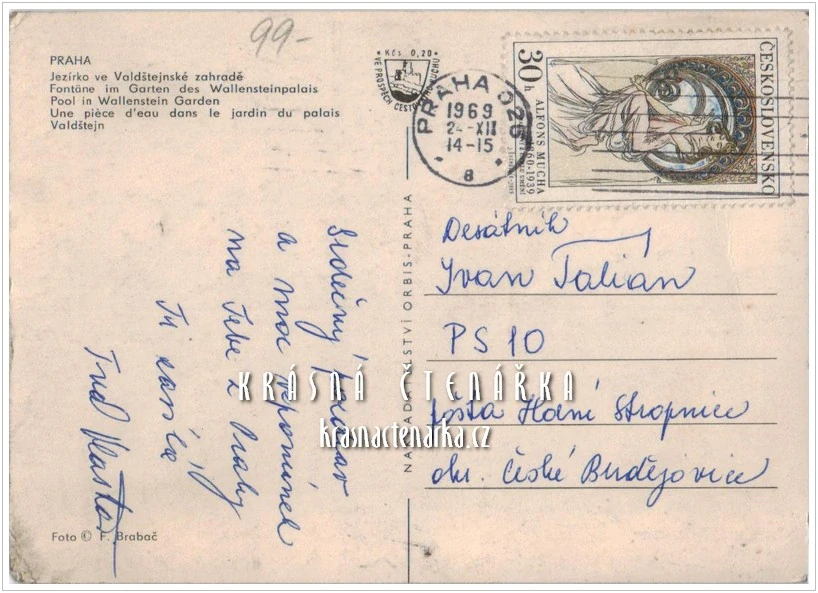 99-
PRAHA
Jezírko ve Valdštejnské zahradě
Fontäne im Garten des Wallensteinpalais
Pool in Wallenstein Garden
Une pièce d'eau dans le jardin du palais
Valdštejn
• Kčs. 0,20 •
VE PROSPĚCH CESTOVNÍHO RUCHU
PRAHA 025
1969
2 -XII
14-15
a
ČESKOSLOVENSKO
30h
ALFONS MUCHA
1860-1939
Srdečný pozdrav
a moc vzpomínek
na Tebe z Prahy
Ti zasílá
Tvá Vlasta
NAKLADATELSTVÍ ORBIS-PRAHA
Desátník
Ivan Talián
PS 10
pošta Horní Stropnice
okr. České Budějovice
KRÁSNÁ ČTENÁŘKA
krasnactenarka.cz
Foto © F. Brabač